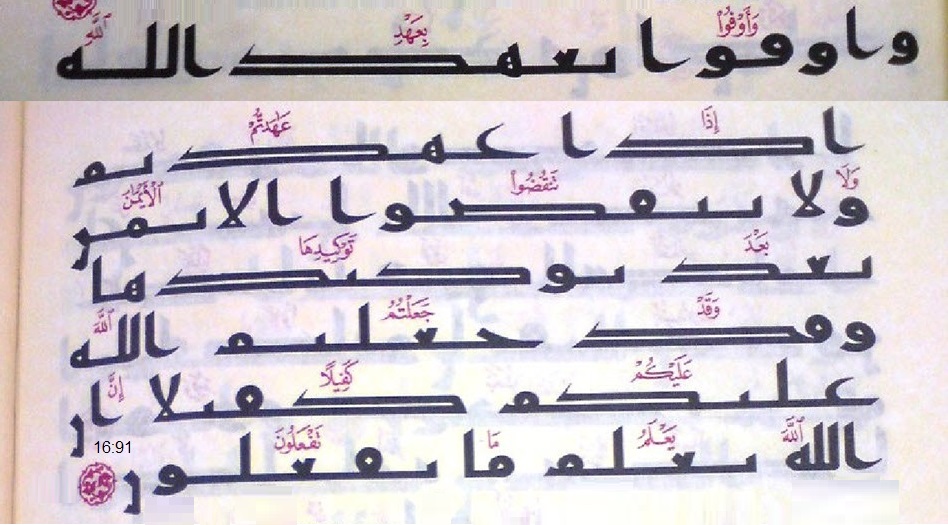 وَأَوْفُوا۟ بِعَهْدِ ٱللَّهِ
واوفوا بعهد الله
إِذَا عَـٰهَدتُّمْ
اذا عهدتم
وَلَا تَنقُضُوا۟ ٱلْأَيْمَـٰنَ
ولا تنقضوا الايمن
بَعْدَ تَوْكِيدِهَا
بعد توكيدها
وَقَدْ جَعَلْتُمُ ٱللَّهَ
وقد جعلتم الله
عَلَيْكُمْ كَفِيلًا إِنَّ
عليكم كفيلا ان
ٱللَّهَ يَعْلَمُ مَا تَفْعَلُونَ
الله يعلم ما تفعلون
16:91